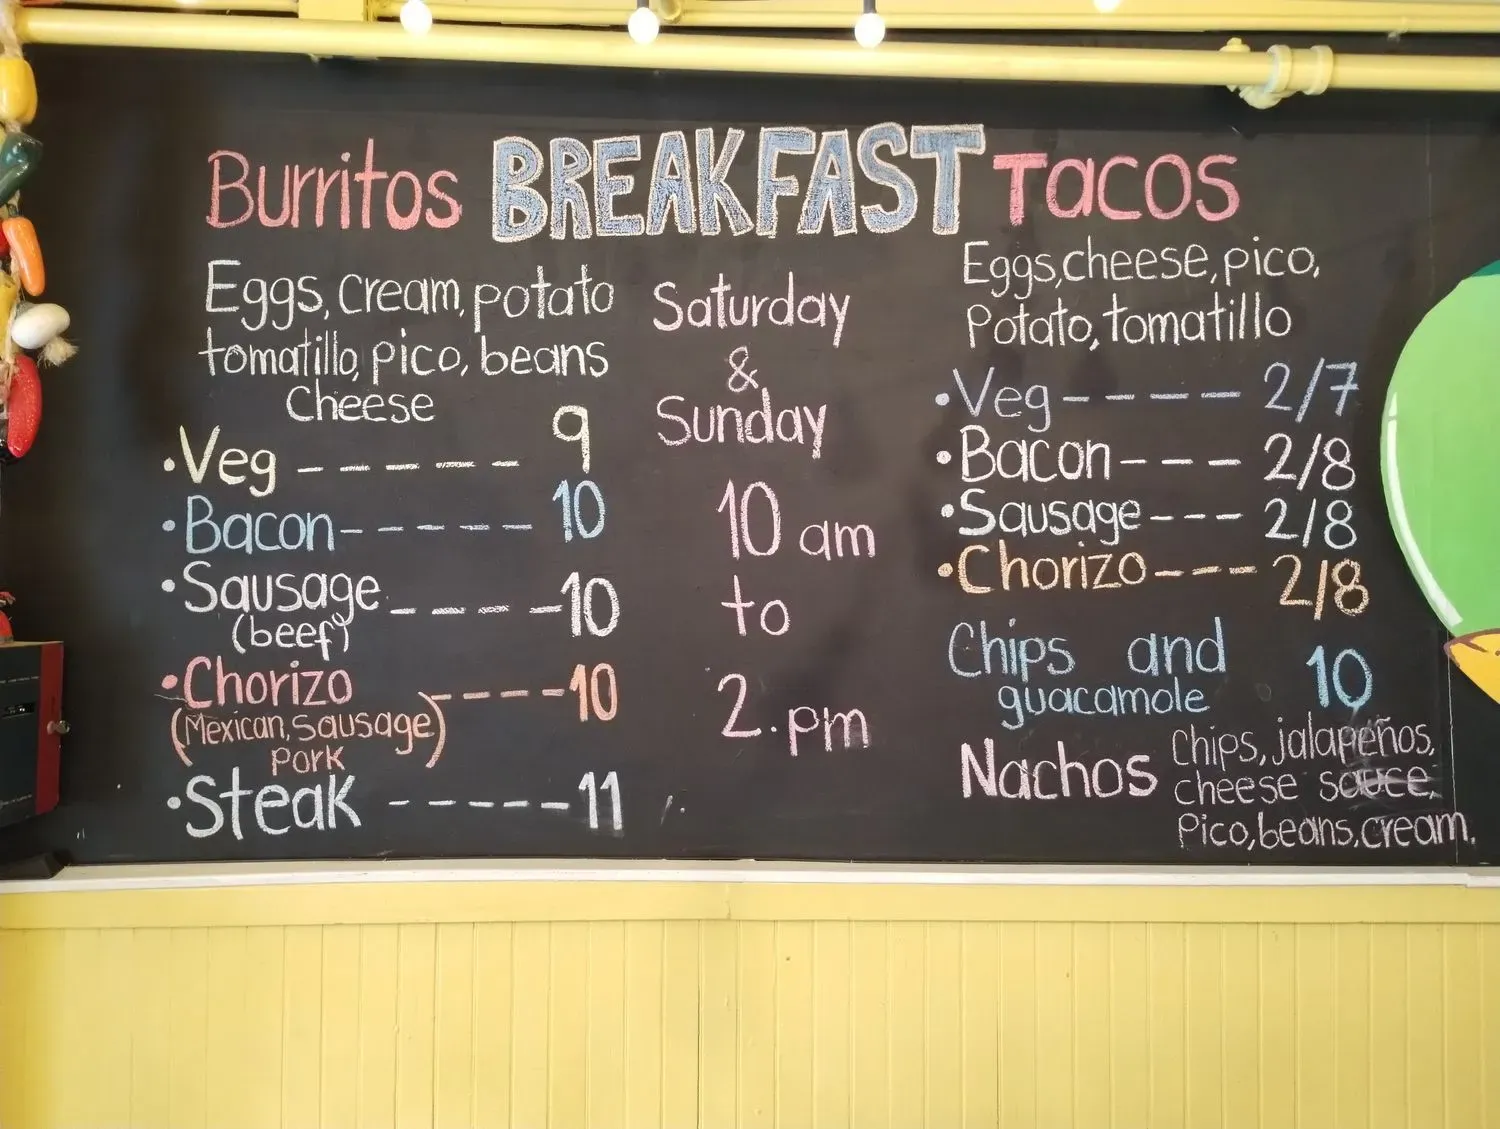 BREAKFAST
Burritos
Eggs, cream, potato
tomatillo, pico, beans
Cheese
•Veg ------ 9
•Bacon----- 10
•Sausage-----10
(beef)
•Chorizo ----10
(Mexican, sausage)
pork
•Steak -----11
Saturday
&
Sunday
10 am
to
2.pm
Tacos
Eggs, cheese, pico,
Potato, tomatillo
•Veg----- 2/7
•Bacon--- 2/8
•Sausage--- 2/8
•Chorizo--- 2/8
Chips and 10
guacamole
Nachos Chips, jalapeños,
cheese sauce,
Pico, beans, cream.